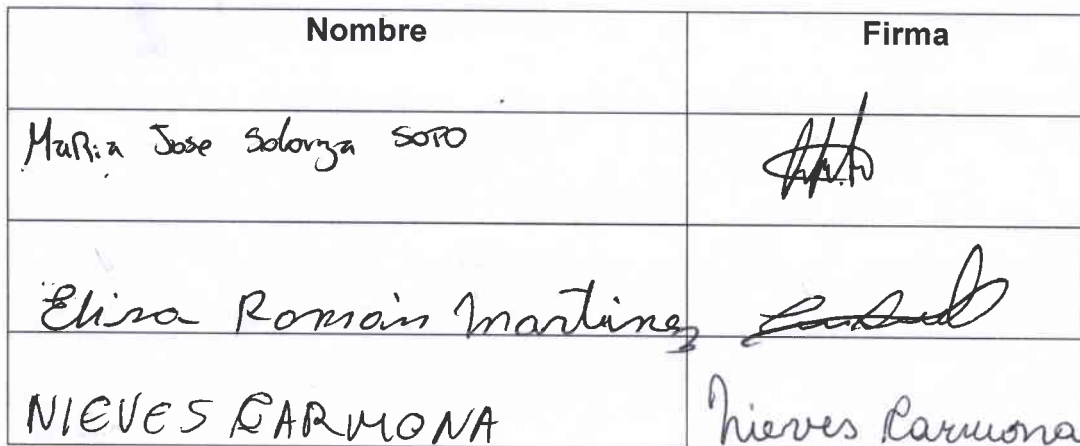 Nombre Firma
MaRia Jose Solorza SOTO
Elisa Román Martinez
NIEVES CARMONA Nieves Carmona